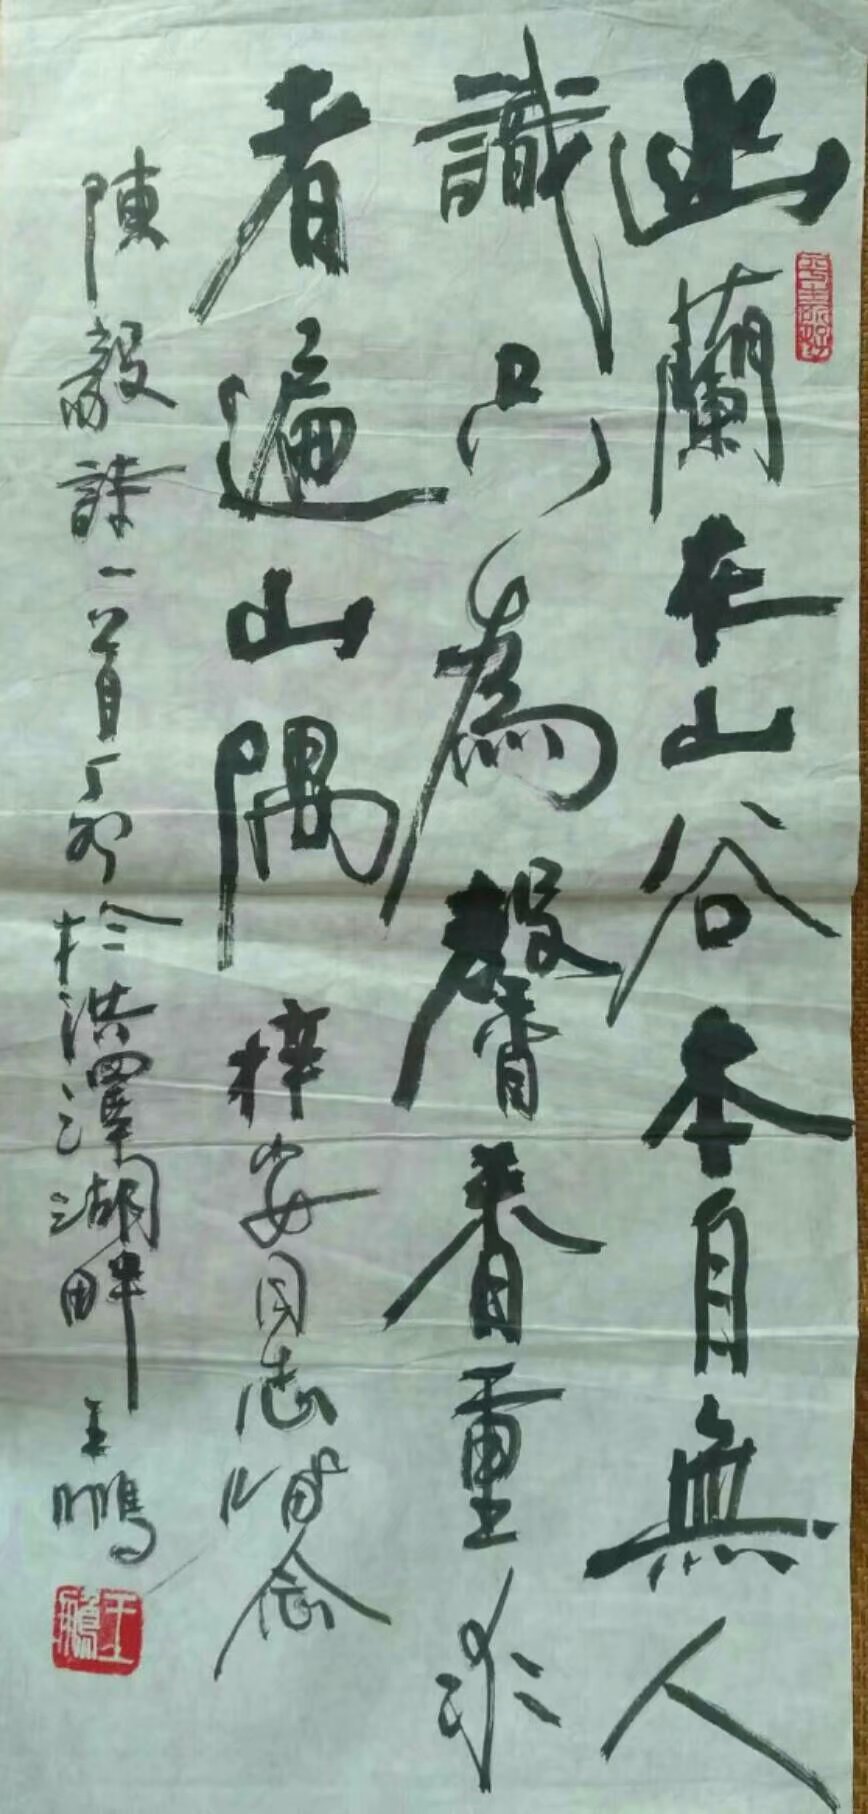 幽蘭在山谷本自無人
識只為馨香重求
者遍山隅
梓安同志留念
陳毅詩一首丁卯於洪澤湖畔
王鵬
王鵬